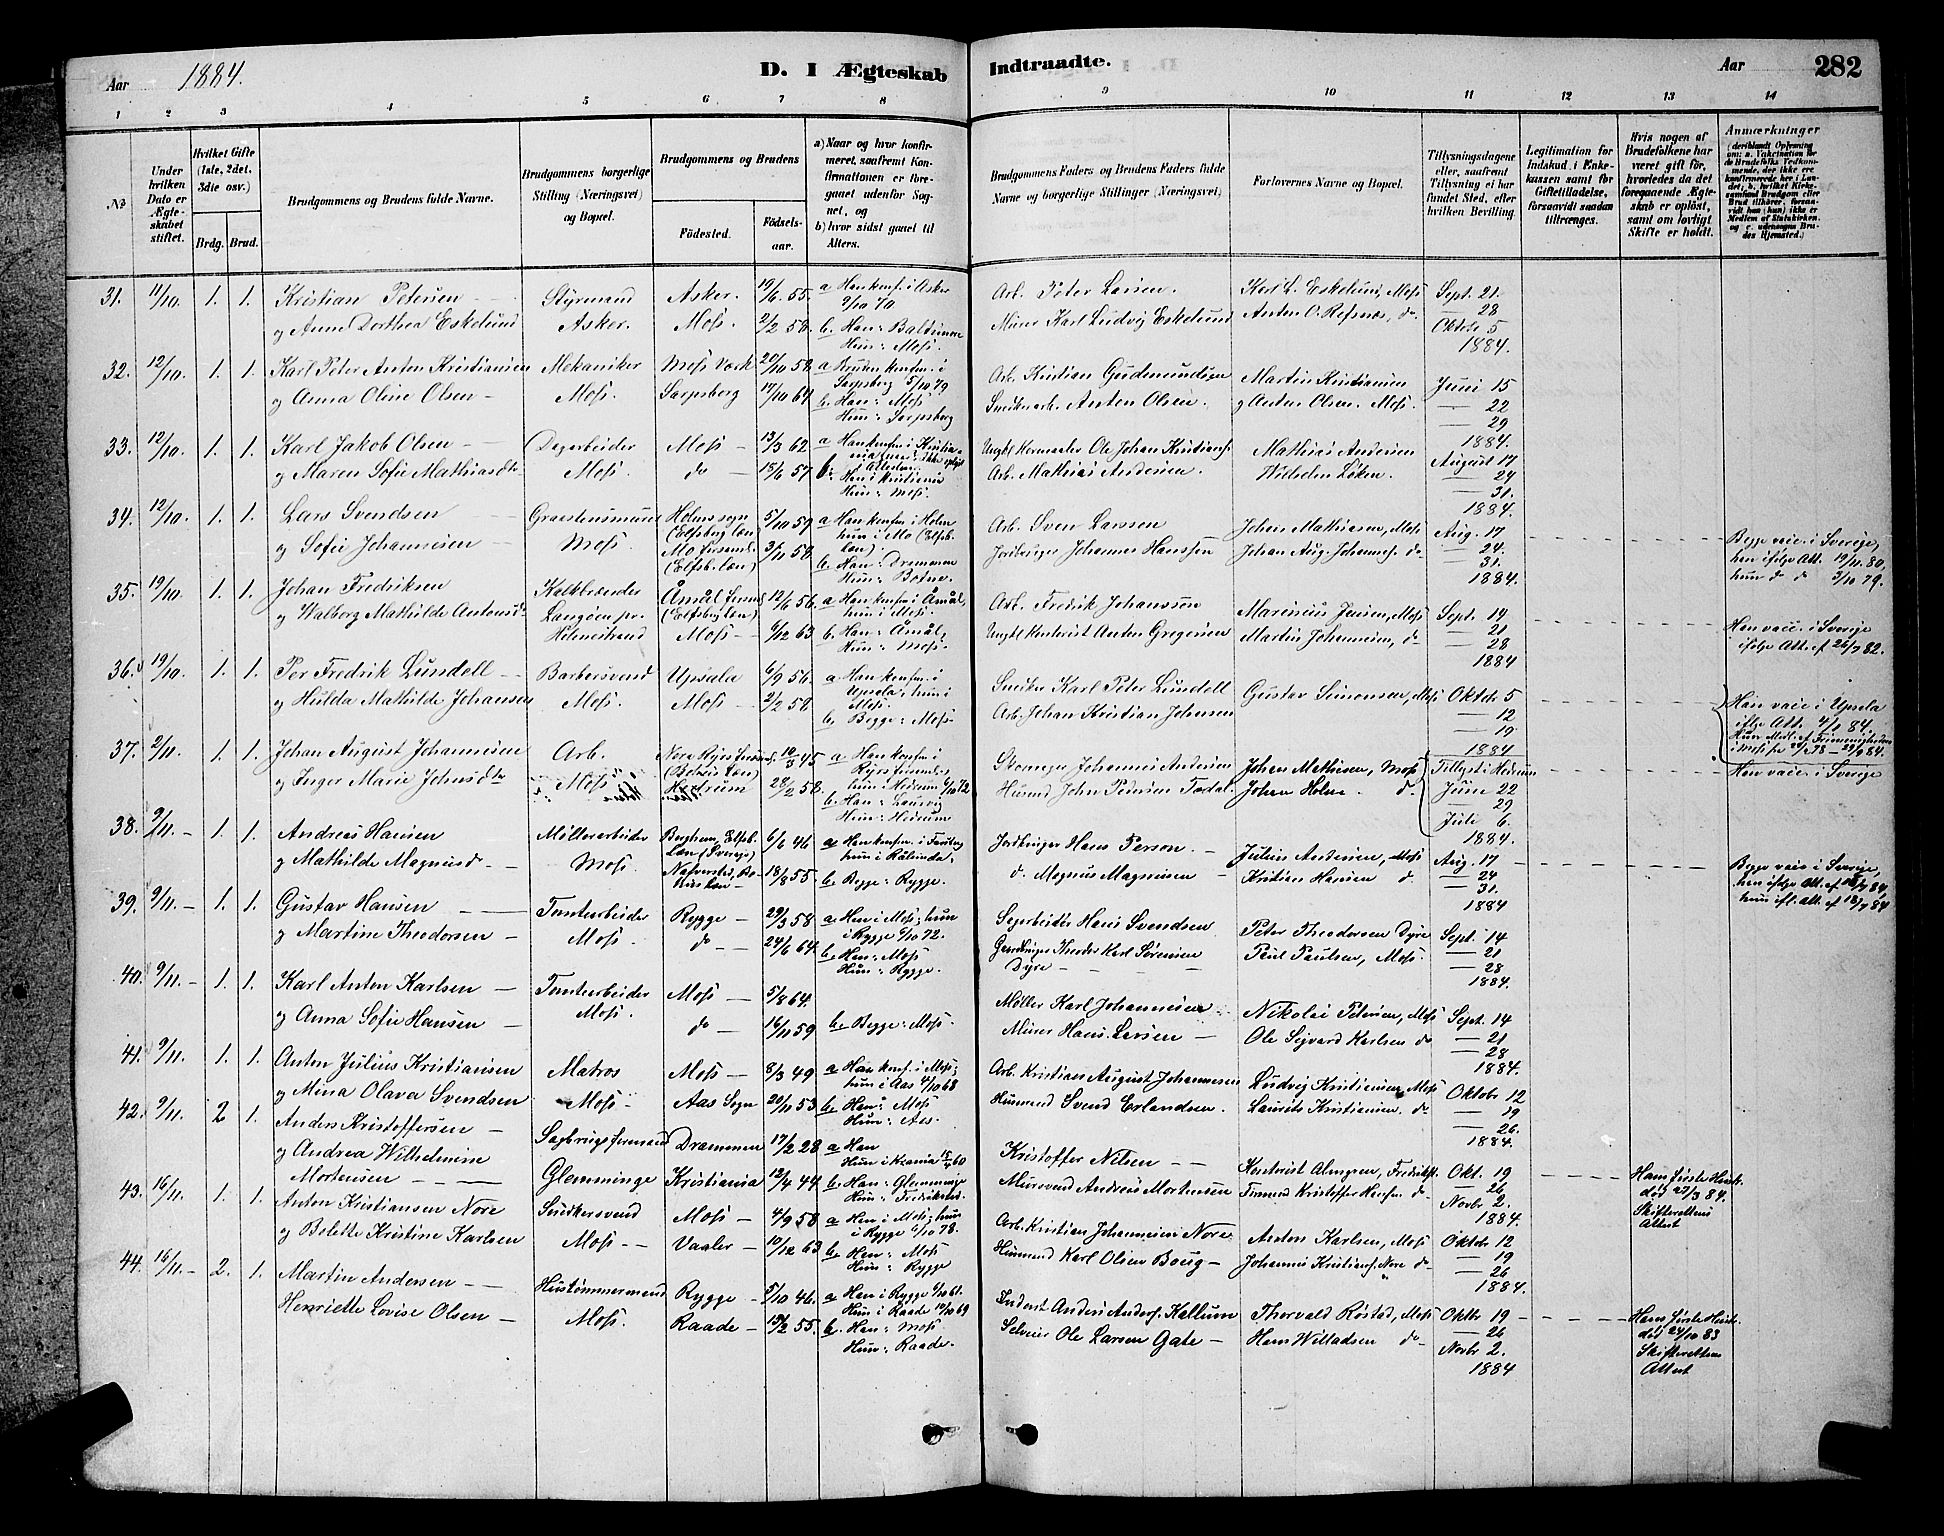 Aar 1884. D. I Ægteskab Indtraadte. Aar 282
1 2 3 4 5 6 7 8 9 10 11 12 13 14
No
Under hvilken Dato er Ægteskabet stiftet.
Hvilket Gifte (1ste, 2det, 3die osv.)
Brdg. Brud.
Brudgommens og Brudens fulde Navne.
Brudgommens borgerlige Stilling (Næringsvei) og Bopæl.
Brudgommens og Brudens
Fødested.
Fødselsaar.
a) Naar og hvor konfirmeret, saafremt Konfirmationen er foregaaet udenfor Sognet, og
b) hvor sidst gaaet til Alters.
Brudgommens Faders og Brudens Faders fulde Navne og borgerlige Stillinger (Næringsvei)
Forlovernes Navne og Bopæl.
Tillysningsdagene eller, saafremt Tillysning ei har fundet Sted, efter hvilken Bevilling.
Legitimation for Indskud i Enkekassen samt for Giftetilladelse, forsaavidt saadan tiltrænges.
Hvis nogen af Brudefolkene har været gift før, hvorledes da det foregaaende Ægteskab er opløst, samt om lovligt Skifte er holdt.
Anmærkninger
31. 11/10. 1. 1. Kristian Petersen Styrmand Asker. 19/6 55. a Han konf. i Asker 9/10 70 Arb. Peter Larsen Karl L. Eskelund, Moss Sept. 21.
og Anne Dorthea Eskelund Asker. Moss. 2/2 58. b. Han: Baltimore Hun: Moss. Murer Karl Ludvig Eskelund Anton O. Refsnæs, do 28 Oktbr 5 1884.
32. 12/10. 1. 1. Karl Peter Anton Kristiansen Mekaniker Moss Værk 20/10 58. a Bruden konf. i Sarpsborg 5/10 79 Arb. Kristian Gudmundsen Martin Kristiansen Juni 15
og Anna Oline Olsen Moss. Sarpsborg 17/10 64 b. Han: Moss Hun: Sarpsborg Snedkerarb. Anton Olsen. og Anton Olsen. Moss. 22 29 1884.
33. 12/10. 1. 1. Karl Jakob Olsen Dagarbeider Moss 13/3 62 a Han konf. i Kristiania Ungkl. Ole Johan Kristians. Mathias Andersen August 17
og Maren Sofie Mathiasdtr Moss. do 15/6 57 b. Han i Kristiania Hun: Moss. Arb. Mathias Andersen Wilhelm Løken. 24 31. 1884.
34. 12/10. 1. 1. Lars Svendsen Moss. Holms sogn (Elfsborg Læn) 5/10 59 a Han konf. i Holm hun i Mo (Elfsb. Læn). Arb. Sven Larsen Johan Mathiasen, Moss Aug. 17
og Sofie Johannesen Mo (Elfsb. Læn) 3/11 58. b. Han: Drammen Hun: Botne. Jordbruger Johannes Hanssen Johan Aug. Johannes. do 24. 31. 1884. Begge vacc. i Sverige, han ifølge Att. 19/11 80, hun do do 3/10 79.
35. 19/10. 1. 1. Johan Fredriksen Kalkbrænder Åmål (Elfsborg Læn) 12/6 56. a Han konf. i Åmål, hun i Moss. Arb. Fredrik Johanssen Marinius Jensen, Moss Sept. 14
og Walborg Mathilde Antonsdtr Langøen pr. Holmestrand Moss 6/12 63 b. Han: Åmål, Hun: Moss. Anton Gregersen Martin Johannesen, do 21 28 1884 Han vacc. i Sverige ifølge Att. af 26/7 82.
36. 19/10. 1. 1. Per Fredrik Lundell Barbersvend Upsala 6/9 56. a Han konf. i Upsala, hun i Moss. Snedker Karl Peter Lundell Gustav Simonsen, Moss Oktbr 5
og Hulda Mathilde Johansen Moss. Moss 2/2 58. b. Begge: Moss Arb. Johan Kristian Johansen 12 19 1884 Han vacc. i Upsala ifølge Att. 4/9 84. Hun Medl. af Frimenigheden i Moss
37. 2/11. 1. 1. Johan August Johannesen Arb. 10/3 45 a Han konf. i hun: Hedrum 6/10 72 Johannes Andersen Johan Mathisen, Moss Tillyst i Hedrum
og Inger Marie Johnsdtr Moss Hedrum 28/2 52. b. Han: Laurvig Hun: Hedrum Husmd John Pedersen Johan Holm. do Juni 22 29 Juli 6. 1884. Han vacc. i Sverige
38. 9/11. 1. 1. Andreas Hansen Møllerarbeider Elfsb. Læn (Sverige) 6/6 46 a Han konf. i Jordbruger Hans Person. Julius Andersen, Moss Aug. 17
og Mathilde Magnusdr Moss. 18/8 55. b. Begge: Rygge. do. Magnus Magnusen Kristian Hansen do 24 31. 1884 Begge vacc. i Sverige, han ifølge Att. af 84, hun ifl. Att. af 18/7 84
39. 9/11. 1. 1. Gustav Hansen Tomtearbeider Rygge 29/3 58 a Han i Moss; hun i Rygge 6/10 72. Sagarbeider Hans Svendsen Peter Theodorsen Dyre Sept. 14
og Martine Theodorsen Moss. do 24/6 64. b. Han: Moss Hun: Rygge. Gaardbruger Theodor Karl Sørensen Dyre Paul Paulsen, Moss. 21 28 1884.
40. 9/11. 1. 1. Karl Anton Karlsen Tomtearbeider Moss 5/8 64. Møller Karl Johannesen Nikolai Petersen, Moss Sept. 14
og Anna Sofie Hansen Moss. do 16/11 59 b. Begge: Moss. Murer Hans Larsen Ole Sigvard Karlsen do 21 28 1884.
41. 9/11. 1. 1. Anton Julius Kristiansen Matros Moss 8/3 49 a Han konf. i Moss; hun i Aas 4/10 68 Arb. Kristian August Johannesen Ludvig Kristiansen, Moss Oktober 12
og Mina Olava Svendsen Moss. Aas Sogn 20/11 53 b. Han: Moss Hun: Aas. Husmand Svend Erlandsen. Laurits Kristiansen. do 19 26. 1884.
42. 9/11. 2 1. Anders Kristoffersen Sagbrugsformand Drammen 17/2 28 a Han Hun i Krania 60 Kristoffer Nilsen Kontorist Almgren, Fredrikst. Okt. 19
og Andrea Wilhelmine Mortensen Glemminge Kristiania 12/4 44 b. Han: Glemminge Hun: Fredrikstad. Mursvend Andreas Mortensen Formand Kristoffer Hansen do 26 Novbr 2. 1884. Hans første Hustr. død 27/3 84. Skifterettens Attest
43. 16/11. 1. 1. Anton Kristiansen Nore Snedkersvend Moss 4/9 58 a Han i Moss; hun i Rygge 6/10 78. Arb. Kristian Johannesen Nore Anton Karlsen, Moss Oktbr 12
og Bolette Kristine Karlsen Moss Vaaler 10/12 63 b. Han: Moss Hun: Rygge Husmand Karl Olsen Boug Johannes Kristians. Nore do 19 26 1884.
44. 16/11. 2. 1. Martin Andersen Hustømmermand Rygge 5/10 46. a Han i Rygge 6/10 61. Hun i Raade 10/10 69 Inderst Anders Anders. Kallum Thorvald Røstad, Moss Oktbr 19
Henriette Lovise Olsen Moss. Raade 19/2 55. b. Han: Moss Hun: Raade. Selveier Ole Larsen Gate Hans Willadsen do 26 Novbr 2. 1884 Hans første Hustr. død 24/10 83 Skifterettens Attest